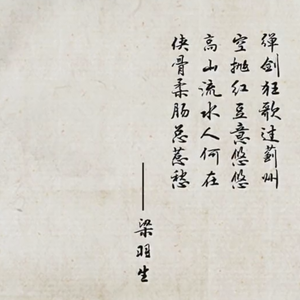 弹剑狂歌过蓟州
空抛红豆意悠悠
高山流水人何在
侠骨柔肠总惹愁
——梁羽生